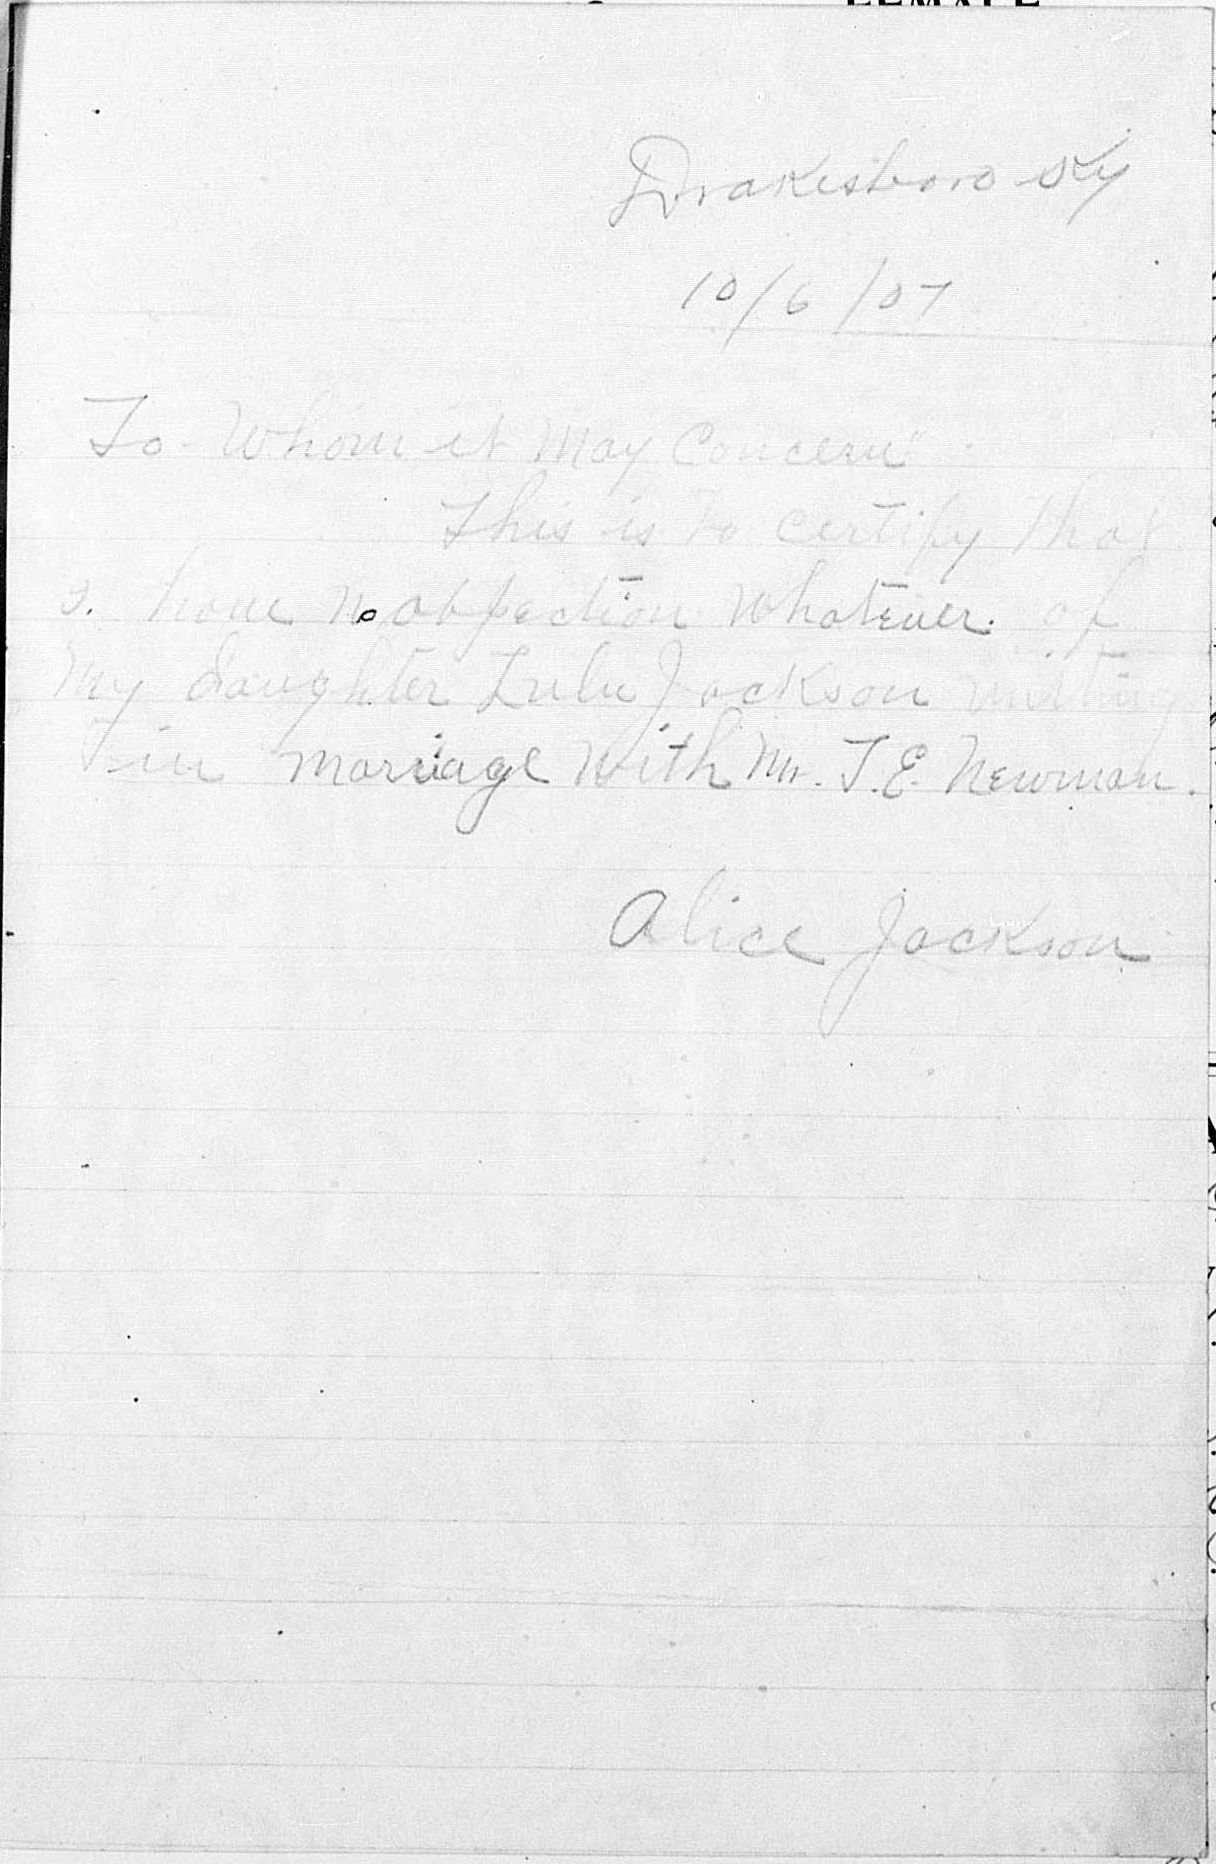 Drakesboro Ky
10/6/07
To Whom it May Concern"
This is to certify that
I. have no objection whatever. of
My daughter Lulu Jackson uniting
in marriage with Mr. T. E. Newman.
Alice Jackson